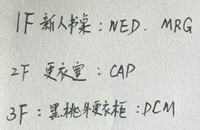 1F 新人书桌: NED. MRG
2F 更衣室: CAP
3F: 黑桃米更衣柜: DCM